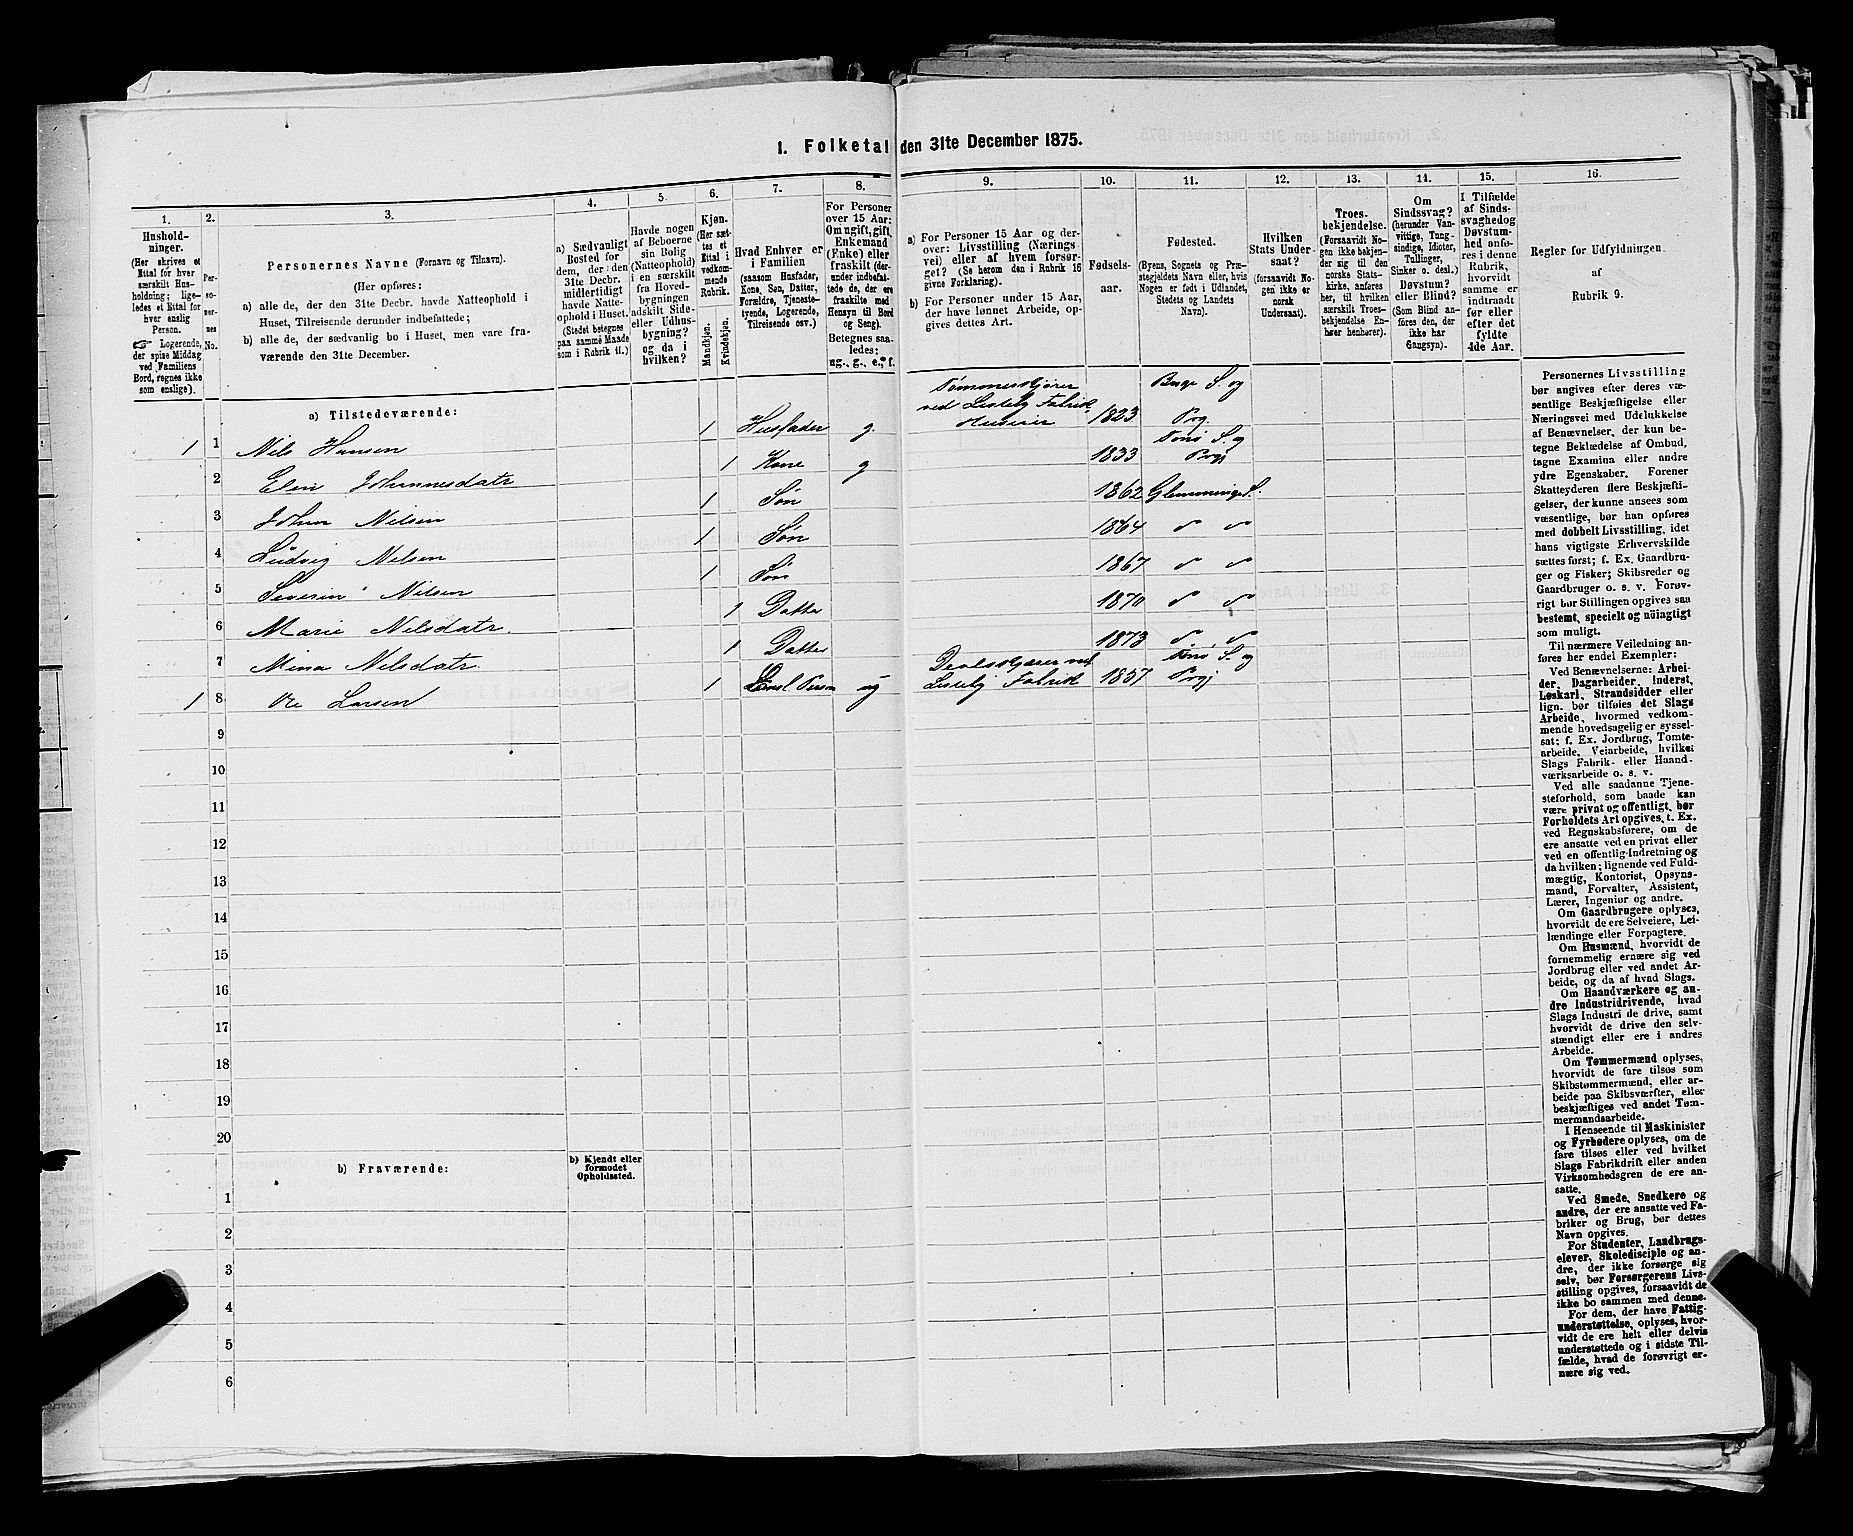 1. Folketal den 31te December 1875.
1.
Hushold-
ninger.
(Her skrives et
Ettal for hver
særskilt Hus-
holdning; lige-
ledes et Ettal for
hver enslig
Person.
☞ Logerende,
der spise Middag
ved Familiens
Bord, regnes ikke
som enslige).
2.
Per-
so-
ner-
nes
No.
3.
Personernes Navne (Fornavn og Tilnavn).
(Her opføres:
a) alle de, der den 31te Decbr. havde Natteophold i
Huset, Tilreisende derunder indbefattede;
b) alle de, der sædvanlig bo i Huset, men vare fra-
værende den 31te December.
4.
a) Sædvanligt
Bosted for
dem, der den
31te Decbr.
midlertidigt
havde Natte-
ophold i Huset.
(Stedet betegnes
paa samme Maade
som i Rubrik 11.)
5.
Havde nogen
af Beboerne
sin Bolig
(Natteophold)
i en særskilt
fra Hoved-
bygningen
adskilt Side-
eller Udhus-
bygning?
og da i
hvilken?
6.
Kjøn.
(Her sæt-
tes et
Ettal i
vedkom-
mende
Rubrik.
Mandkjøn.
Kvindekjøn.
7.
Hvad Enhver er
i Familien
(saasom Husfader,
Kone, Søn, Datter,
Forældre, Tjeneste-
tyende, Logerende,
Tilreisende osv.)
8.
For Personer
over 15 Aar:
Om ugift, gift,
Enkemand
(Enke) eller
fraskilt (der-
under indbefat-
tede de, der ere
fraskilte med
Hensyn til Bord
og Seng).
Betegnes saa-
ledes:
ug., g., e., f.
9.
a) For Personer 15 Aar og der-
over: Livsstilling (Nærings-
vei) eller af hvem forsør-
get? (Se herom den i Rubrik 16
givne Forklaring).
b) For Personer under 15 Aar,
der have lønnet Arbeide, op-
gives dettes Art.
10.
Fødsels-
aar.
11.
Fødested.
(Byens, Sognets og Præ-
stegjeldets Navn eller, hvis
Nogen er født i Udlandet,
Stedets og Landets
Navn).
12.
Hvilken
Stats Under-
saat?
(forsaavidt No-
gen ikke er
norsk
Undersaat).
13.
Troes-
bekjendelse.
(Forsaavidt No-
gen ikke bekjen-
der sig til den
norske Stats-
kirke, anføres
her, til hvilken
særskilt Troes-
bekjendelse En-
hver henhører).
14.
Om
Sindssvag?
(herunder Van-
vittige, Tung-
sindige, Idioter,
Tullinger,
Sinker o. desl.)
Døvstum?
eller Blind?
(Som Blind an-
føres den, der
ikke har
Gangsyn).
15.
I Tilfælde
af Sinds-
svaghed og
Døvstum-
hed anfø-
res i denne
Rubrik,
hvorvidt
samme er
indtraadt
før eller
efter det
fyldte
4de Aar.
16.
Regler for Udfyldningen
af
Rubrik 9.
a) Tilstedeværende:
1 1 Nils Hansen 1 Husfader g. Tømmerskjører
ved Lisleby Fabrik,
Huseier 1823 S. og
Prg.
2 Elen Johannesdatr 1 Kone g 1833 Tunø S. og
Prgj
3 Johan Nilsen 1 Søn 1862 Glemminge S.
4 Ludvig Nilsen 1 Søn 1864 〃 〃
5 Severin Nilsen 1 Søn 1867 〃 〃
6 Marie Nilsdatr. 1 Datter 1870 〃 〃
7 Mina Nilsdatr. 1 Datter 1873 〃 〃
1 8 Ole Larsen 1 Ensl Person ug ved
Lisleby Fabrik 1857 Tunø S. og
Prgj
9
10
11
12
13
14
15
16
17
18
19
20
b) Fraværende:
b) Kjendt eller
formodet
Opholdssted.
1
2
3
4
5
6
Personernes Livsstilling
bør angives efter deres væ-
sentlige Beskjæftigelse eller
Næringsvei med Udelukkelse
af Benævnelser, der kun be-
tegne Beklædelse af Ombud,
tagne Examina eller andre
ydre Egenskaber. Forener
Skatteyderen flere Beskjæfti-
gelser, der kunne ansees som
væsentlige, bør han opføres
med dobbelt Livsstilling, idet
hans vigtigste Erhvervskilde
sættes først; f. Ex. Gaardbru-
ger og Fisker; Skibsreder og
Gaardbruger o. s. v. Forøv-
rigt bør Stillingen opgives saa
bestemt, specielt og nöiagtigt
som muligt.
Til nærmere Veiledning an-
føres her endel Exempler:
Ved Benævnelserne: Arbei-
der, Dagarbeider, Inderst,
Løskarl, Strandsidder eller
lign. bør tilføies det Slags
Arbeide, hvormed vedkom-
mende hovedsagelig er syssel-
sat; f. Ex. Jordbrug, Tomte-
arbeide, Veiarbeide, hvilket
Slags Fabrik- eller Haand-
værksarbeide o. s. v.
Ved alle saadanne Tjene-
steforhold, som baade kan
være privat og offentligt, bør
Forholdets Art opgives, t. Ex.
ved Regnskabsførere, om de
ere ansatte ved en privat eller
ved en offentlig Indretning og
da hvilken; lignende ved Fuld-
mægtig, Kontorist, Opsyns-
mand, Forvalter, Assistent,
Lærer, Ingeniør og andre.
Om Gaardbrugere oplyses,
hvorvidt de ere Selveiere, Lei-
lændinge eller Forpagtere.
Om Husmænd, hvorvidt de
fornemmelig ernære sig ved
Jordbrug eller ved andet Ar-
beide, og da af hvad Slags.
Om Haandværkere og an-
dre Industridrivende, hvad
Slags Industri de drive, samt
hvorvidt de drive den selv-
stændigt eller ere i andres
Arbeide.
Om Tømmermænd oplyses,
hvorvidt de fare tilsøs som
Skibstømmermænd, eller ar-
beide paa Skibsværfter, eller
beskjæftiges ved andet Tøm-
mermandsarbeide.
I Henseende til Maskinister
og Fyrbødere oplyses, om de
fare tilsøs eller ved hvilket
Slags Fabrikdrift eller anden
Virksomhedsgren de ere an-
satte.
Ved Smede, Snedkere og
andre, der ere ansatte ved Fa-
briker og Brug, bør dettes
Navn opgives.
For Studenter, Landbrugs-
elever, Skoledisciple og an-
dre, der ikke forsørge sig
selv, bør Forsørgerens Livs-
stilling opgives, forsaavidt de
ikke bo sammen med denne.
For dem, der have Fattig-
understøttelse, oplyses, hvor-
vidt de ere helt eller delvis
understøttede og i sidste Til-
fælde, hvad de forøvrigt er-
nære sig ved.